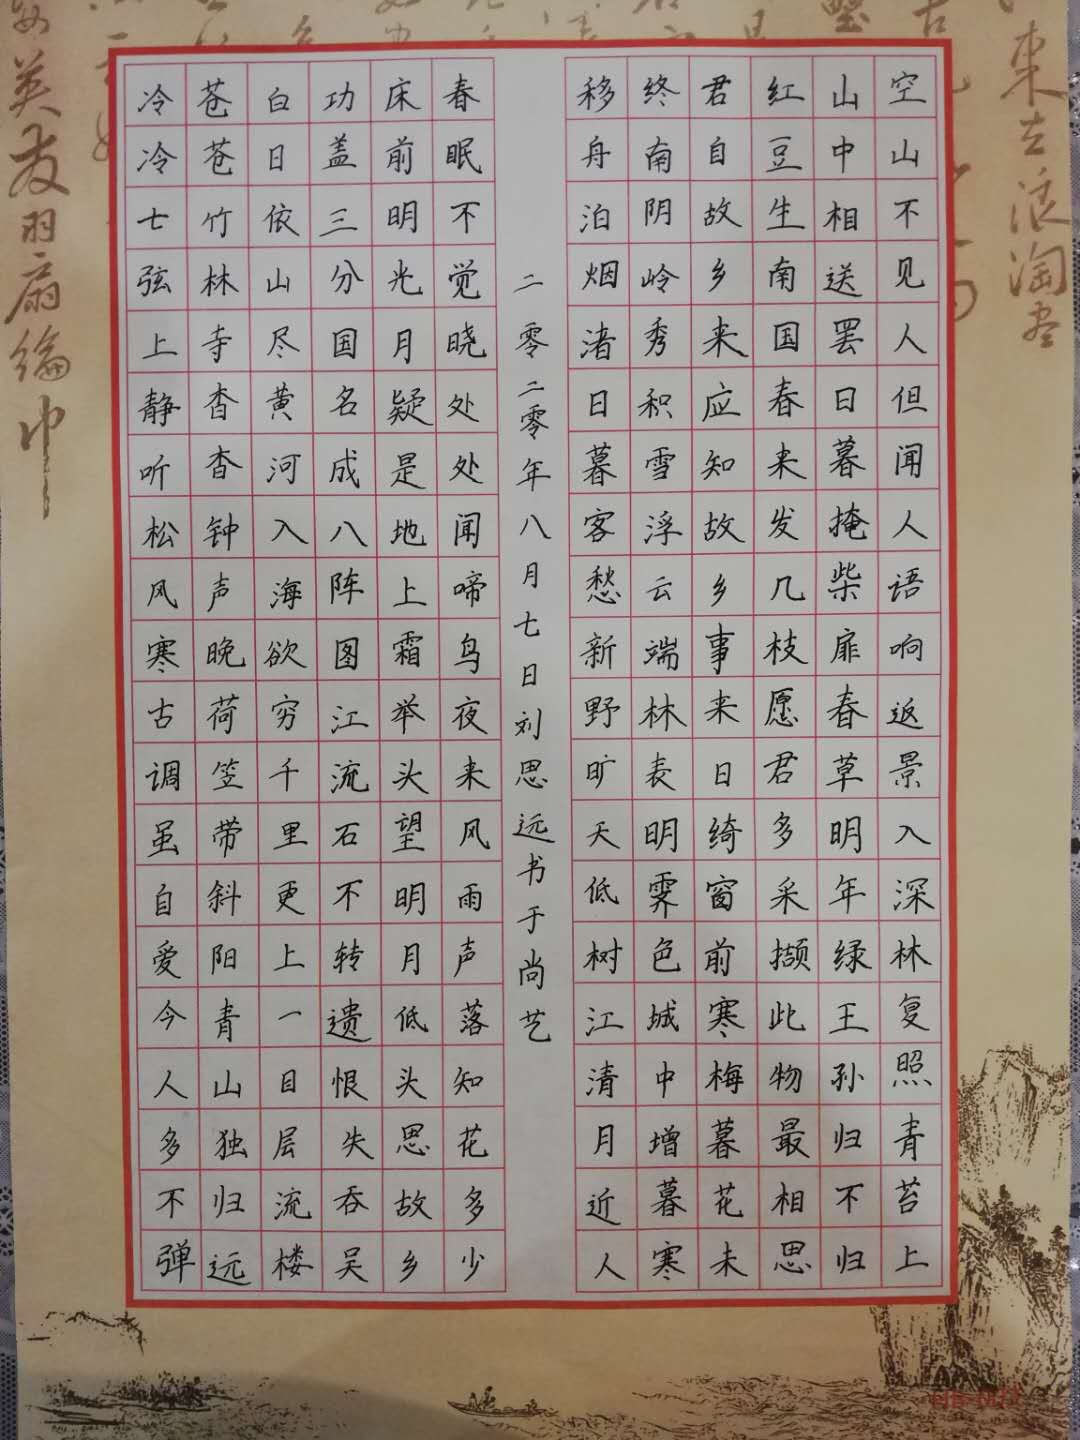 東去浪淘尽
空山不见人但闻人语响返景入深林复照青苔上
山中相送罢日暮掩柴扉春草明年绿王孙归不归
红豆生南国春来发几枝愿君多采撷此物最相思
君自故乡来应知故乡事来日绮窗前寒梅暮花未
终南阴岭秀积雪浮云端林表明霁色城中增暮寒
移舟泊烟渚日暮客愁新野旷天低树江清月近人
二零二零年八月七日刘思远书于尚艺
春眠不觉晓处处闻啼鸟夜来风雨声落知花多少
床前明光月疑是地上霜举头望明月低头思故乡
功盖三分国名成八阵图江流石不转遗恨失吞吴
白日依山尽黄河入海欲穷千里更上一目层流楼
苍苍竹林寺杳杳钟声晚荷笠带斜阳青山独归远
冷冷七弦上静听松风寒古调虽自爱今人多不弹
英发羽扇纶巾